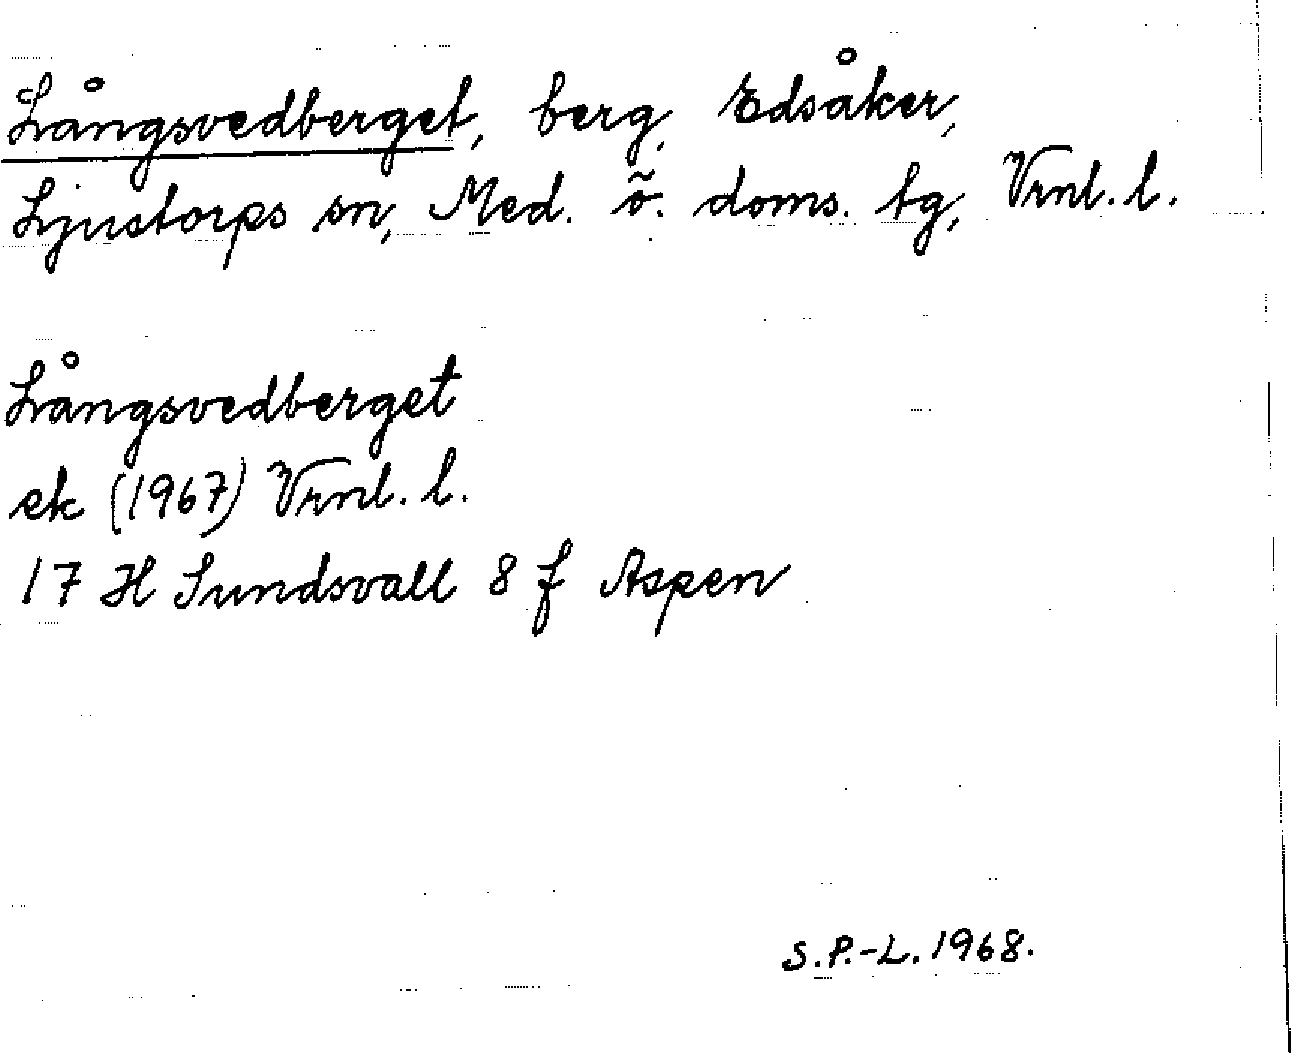 Långsvedberget, berg, Edsåker,
Ljustorps sn, Med. ö. doms. tg, Vrnl. l.
Långsvedberget
ek (1967) Vrnl. l.
17 H Sundsvall 8 f Aspen
S.P.-L. 1968.